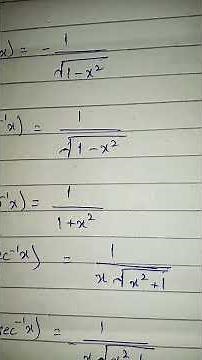 x) = - 1/√(1-x²)
⁻¹x) = 1/√(1-x²)
⁻¹x) = 1/(1+x²)
ec⁻¹x) = 1/(x√(x²+1))
sec⁻¹x) = - 1/